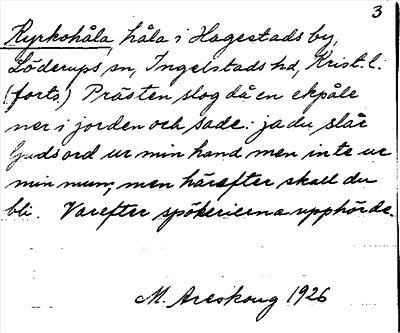 3
Kyrkohåla, håla i Hagestads by,
Löderups sn, Ingelstads hd, Krist. l.
(forts.) Prästen slog då en ekpåle
ner i jorden och sade: ja du slår
Guds ord ur min hand men inte ur
min mun, men härefter skall du
bli. Varefter spökerierna upphörde.
M. Areskoug 1926